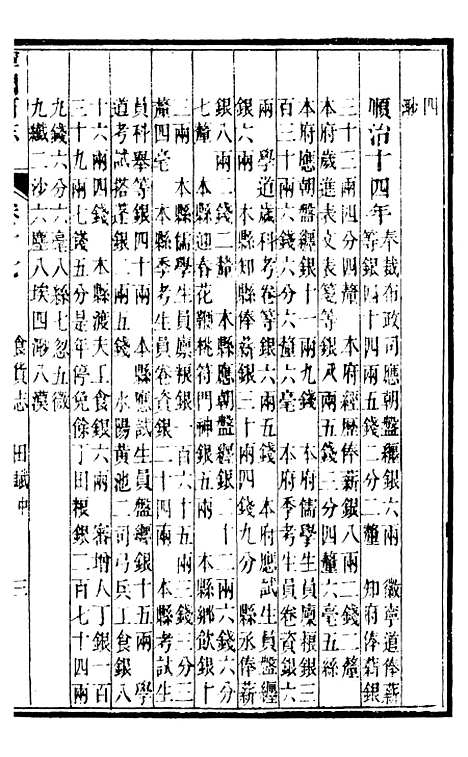 四
渺
順治十四年奉裁布政司應朝盤纏銀六兩 徽寧道俸薪
等銀四十四兩五錢二分二釐 知府俸薪銀
三十三兩四分四釐 本府經歷俸薪銀八兩二錢二釐
本府歲進表文表箋等銀八兩五錢三分四釐六毫五絲
本府應朝盤纏銀十一兩九錢 本府儒學生員廩糧銀三
百三十六兩六錢 本府季考生員卷資銀六
兩 學道歲科考卷等銀六分六釐六毫 本府應試生員盤纏
銀六兩 本縣知縣俸薪銀三十兩四錢九分 縣丞俸薪
銀八兩二錢二釐 本縣應朝盤纏銀二十二兩六錢六分
七釐 本縣迎春花鞭桃符門神銀五兩 本縣鄉飲銀十
二兩 本縣儒學生員廩糧銀一百六十五兩三錢三分三
釐四毫 本縣季考生員卷資銀二十四兩 本縣考試生
員科舉等銀四十兩 本縣應試生員盤纏銀十五兩 學
道考試搭蓬銀二兩五錢 水陽黃池二司弓兵工食銀八
十六兩四錢 本縣渡夫工食銀六兩 審增人丁銀一百
三十九兩七錢五分是年停免優丁田糧銀二百七十四兩
九錢六分六毫八絲七忽五微
九纖二沙六塵八埃四渺八漠
食貨志 田賦中 三